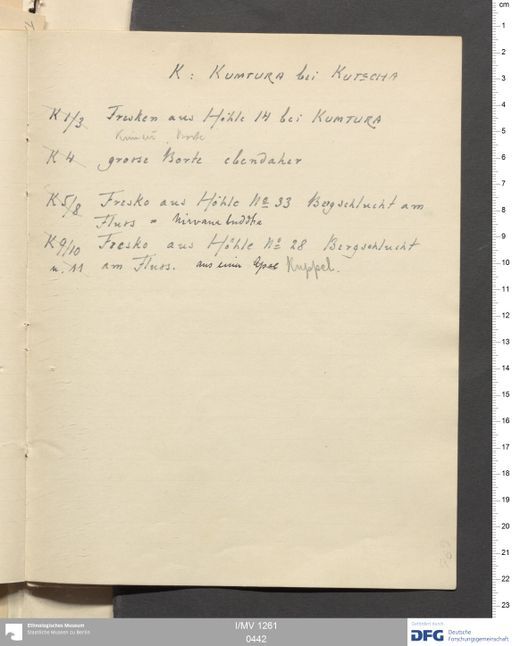 K : KUMTURA bei KUTSCHA
K 1/3 Fresken aus Höhle 14 bei KUMTURA
Borte
K 4 grosse Borte ebendaher
K 5/8 Fresko aus Höhle No 33 Bergschlucht am
Fluss = Nirvana buddha
K 9/10 Fresko aus Höhle No 28 Bergschlucht
u. 11 am Fluss. aus einer Kuppel.
cm
1
2
3
4
5
6
7
8
9
10
11
12
13
14
15
16
17
18
19
20
21
22
23
Ethnologisches Museum
Staatliche Museen zu Berlin
I/MV 1261
0442
Gefördert durch
DFG Deutsche
Forschungsgemeinschaft